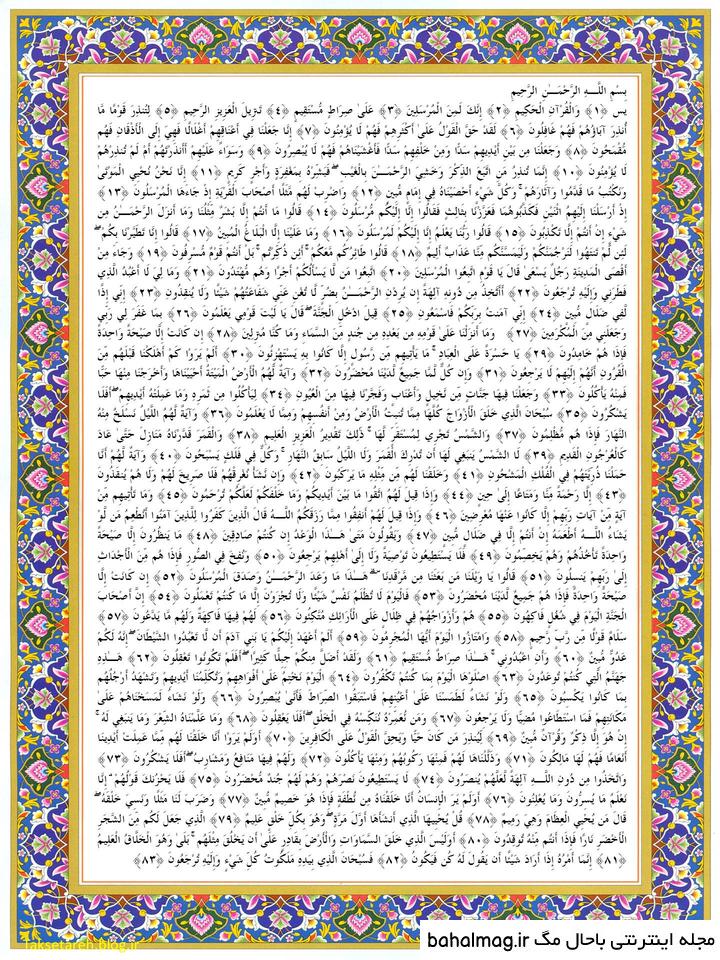 بِسْمِ اللَّـهِ الرَّحْمَـٰنِ الرَّحِيمِ
يس ﴿١﴾ وَالْقُرْآنِ الْحَكِيمِ ﴿٢﴾ إِنَّكَ لَمِنَ الْمُرْسَلِينَ ﴿٣﴾ عَلَىٰ صِرَاطٍ مُّسْتَقِيمٍ ﴿٤﴾ تَنزِيلَ الْعَزِيزِ الرَّحِيمِ ﴿٥﴾ لِتُنذِرَ قَوْمًا مَّا
أُنذِرَ آبَاؤُهُمْ فَهُمْ غَافِلُونَ ﴿٦﴾ لَقَدْ حَقَّ الْقَوْلُ عَلَىٰ أَكْثَرِهِمْ فَهُمْ لَا يُؤْمِنُونَ ﴿٧﴾ إِنَّا جَعَلْنَا فِي أَعْنَاقِهِمْ أَغْلَالًا فَهِيَ إِلَى الْأَذْقَانِ فَهُم
مُّقْمَحُونَ ﴿٨﴾ وَجَعَلْنَا مِن بَيْنِ أَيْدِيهِمْ سَدًّا وَمِنْ خَلْفِهِمْ سَدًّا فَأَغْشَيْنَاهُمْ فَهُمْ لَا يُبْصِرُونَ ﴿٩﴾ وَسَوَاءٌ عَلَيْهِمْ أَأَنذَرْتَهُمْ أَمْ لَمْ تُنذِرْهُمْ
لَا يُؤْمِنُونَ ﴿١٠﴾ إِنَّمَا تُنذِرُ مَنِ اتَّبَعَ الذِّكْرَ وَخَشِيَ الرَّحْمَـٰنَ بِالْغَيْبِ ۖ فَبَشِّرْهُ بِمَغْفِرَةٍ وَأَجْرٍ كَرِيمٍ ﴿١١﴾ إِنَّا نَحْنُ نُحْيِي الْمَوْتَىٰ
وَنَكْتُبُ مَا قَدَّمُوا وَآثَارَهُمْ ۚ وَكُلَّ شَيْءٍ أَحْصَيْنَاهُ فِي إِمَامٍ مُّبِينٍ ﴿١٢﴾ وَاضْرِبْ لَهُم مَّثَلًا أَصْحَابَ الْقَرْيَةِ إِذْ جَاءَهَا الْمُرْسَلُونَ ﴿١٣﴾
إِذْ أَرْسَلْنَا إِلَيْهِمُ اثْنَيْنِ فَكَذَّبُوهُمَا فَعَزَّزْنَا بِثَالِثٍ فَقَالُوا إِنَّا إِلَيْكُم مُّرْسَلُونَ ﴿١٤﴾ قَالُوا مَا أَنتُمْ إِلَّا بَشَرٌ مِّثْلُنَا وَمَا أَنزَلَ الرَّحْمَـٰنُ مِن
شَيْءٍ إِنْ أَنتُمْ إِلَّا تَكْذِبُونَ ﴿١٥﴾ قَالُوا رَبُّنَا يَعْلَمُ إِنَّا إِلَيْكُمْ لَمُرْسَلُونَ ﴿١٦﴾ وَمَا عَلَيْنَا إِلَّا الْبَلَاغُ الْمُبِينُ ﴿١٧﴾ قَالُوا إِنَّا تَطَيَّرْنَا بِكُمْ ۖ
لَئِن لَّمْ تَنتَهُوا لَنَرْجُمَنَّكُمْ وَلَيَمَسَّنَّكُم مِّنَّا عَذَابٌ أَلِيمٌ ﴿١٨﴾ قَالُوا طَائِرُكُم مَّعَكُمْ ۚ أَئِن ذُكِّرْتُم ۚ بَلْ أَنتُمْ قَوْمٌ مُّسْرِفُونَ ﴿١٩﴾ وَجَاءَ مِنْ
أَقْصَى الْمَدِينَةِ رَجُلٌ يَسْعَىٰ قَالَ يَا قَوْمِ اتَّبِعُوا الْمُرْسَلِينَ ﴿٢٠﴾ اتَّبِعُوا مَن لَّا يَسْأَلُكُمْ أَجْرًا وَهُم مُّهْتَدُونَ ﴿٢١﴾ وَمَا لِيَ لَا أَعْبُدُ الَّذِي
فَطَرَنِي وَإِلَيْهِ تُرْجَعُونَ ﴿٢٢﴾ أَأَتَّخِذُ مِن دُونِهِ آلِهَةً إِن يُرِدْنِ الرَّحْمَـٰنُ بِضُرٍّ لَّا تُغْنِ عَنِّي شَفَاعَتُهُمْ شَيْئًا وَلَا يُنقِذُونِ ﴿٢٣﴾ إِنِّي إِذًا
لَّفِي ضَلَالٍ مُّبِينٍ ﴿٢٤﴾ إِنِّي آمَنتُ بِرَبِّكُمْ فَاسْمَعُونِ ﴿٢٥﴾ قِيلَ ادْخُلِ الْجَنَّةَ ۖ قَالَ يَا لَيْتَ قَوْمِي يَعْلَمُونَ ﴿٢٦﴾ بِمَا غَفَرَ لِي رَبِّي
وَجَعَلَنِي مِنَ الْمُكْرَمِينَ ﴿٢٧﴾ وَمَا أَنزَلْنَا عَلَىٰ قَوْمِهِ مِن بَعْدِهِ مِن جُندٍ مِّنَ السَّمَاءِ وَمَا كُنَّا مُنزِلِينَ ﴿٢٨﴾ إِن كَانَتْ إِلَّا صَيْحَةً وَاحِدَةً
فَإِذَا هُمْ خَامِدُونَ ﴿٢٩﴾ يَا حَسْرَةً عَلَى الْعِبَادِ ۚ مَا يَأْتِيهِم مِّن رَّسُولٍ إِلَّا كَانُوا بِهِ يَسْتَهْزِئُونَ ﴿٣٠﴾ أَلَمْ يَرَوْا كَمْ أَهْلَكْنَا قَبْلَهُم مِّنَ
الْقُرُونِ أَنَّهُمْ إِلَيْهِمْ لَا يَرْجِعُونَ ﴿٣١﴾ وَإِن كُلٌّ لَّمَّا جَمِيعٌ لَّدَيْنَا مُحْضَرُونَ ﴿٣٢﴾ وَآيَةٌ لَّهُمُ الْأَرْضُ الْمَيْتَةُ أَحْيَيْنَاهَا وَأَخْرَجْنَا مِنْهَا حَبًّا
فَمِنْهُ يَأْكُلُونَ ﴿٣٣﴾ وَجَعَلْنَا فِيهَا جَنَّاتٍ مِّن نَّخِيلٍ وَأَعْنَابٍ وَفَجَّرْنَا فِيهَا مِنَ الْعُيُونِ ﴿٣٤﴾ لِيَأْكُلُوا مِن ثَمَرِهِ وَمَا عَمِلَتْهُ أَيْدِيهِمْ ۖ أَفَلَا
يَشْكُرُونَ ﴿٣٥﴾ سُبْحَانَ الَّذِي خَلَقَ الْأَزْوَاجَ كُلَّهَا مِمَّا تُنبِتُ الْأَرْضُ وَمِنْ أَنفُسِهِمْ وَمِمَّا لَا يَعْلَمُونَ ﴿٣٦﴾ وَآيَةٌ لَّهُمُ اللَّيْلُ نَسْلَخُ مِنْهُ
النَّهَارَ فَإِذَا هُم مُّظْلِمُونَ ﴿٣٧﴾ وَالشَّمْسُ تَجْرِي لِمُسْتَقَرٍّ لَّهَا ۚ ذَٰلِكَ تَقْدِيرُ الْعَزِيزِ الْعَلِيمِ ﴿٣٨﴾ وَالْقَمَرَ قَدَّرْنَاهُ مَنَازِلَ حَتَّىٰ عَادَ
كَالْعُرْجُونِ الْقَدِيمِ ﴿٣٩﴾ لَا الشَّمْسُ يَنبَغِي لَهَا أَن تُدْرِكَ الْقَمَرَ وَلَا اللَّيْلُ سَابِقُ النَّهَارِ ۚ وَكُلٌّ فِي فَلَكٍ يَسْبَحُونَ ﴿٤٠﴾ وَآيَةٌ لَّهُمْ أَنَّا
حَمَلْنَا ذُرِّيَّتَهُمْ فِي الْفُلْكِ الْمَشْحُونِ ﴿٤١﴾ وَخَلَقْنَا لَهُم مِّن مِّثْلِهِ مَا يَرْكَبُونَ ﴿٤٢﴾ وَإِن نَّشَأْ نُغْرِقْهُمْ فَلَا صَرِيخَ لَهُمْ وَلَا هُمْ يُنقَذُونَ
﴿٤٣﴾ إِلَّا رَحْمَةً مِّنَّا وَمَتَاعًا إِلَىٰ حِينٍ ﴿٤٤﴾ وَإِذَا قِيلَ لَهُمُ اتَّقُوا مَا بَيْنَ أَيْدِيكُمْ وَمَا خَلْفَكُمْ لَعَلَّكُمْ تُرْحَمُونَ ﴿٤٥﴾ وَمَا تَأْتِيهِم مِّنْ
آيَةٍ مِّنْ آيَاتِ رَبِّهِمْ إِلَّا كَانُوا عَنْهَا مُعْرِضِينَ ﴿٤٦﴾ وَإِذَا قِيلَ لَهُمْ أَنفِقُوا مِمَّا رَزَقَكُمُ اللَّـهُ قَالَ الَّذِينَ كَفَرُوا لِلَّذِينَ آمَنُوا أَنُطْعِمُ مَن لَّوْ
يَشَاءُ اللَّـهُ أَطْعَمَهُ إِنْ أَنتُمْ إِلَّا فِي ضَلَالٍ مُّبِينٍ ﴿٤٧﴾ وَيَقُولُونَ مَتَىٰ هَـٰذَا الْوَعْدُ إِن كُنتُمْ صَادِقِينَ ﴿٤٨﴾ مَا يَنظُرُونَ إِلَّا صَيْحَةً
وَاحِدَةً تَأْخُذُهُمْ وَهُمْ يَخِصِّمُونَ ﴿٤٩﴾ فَلَا يَسْتَطِيعُونَ تَوْصِيَةً وَلَا إِلَىٰ أَهْلِهِمْ يَرْجِعُونَ ﴿٥٠﴾ وَنُفِخَ فِي الصُّورِ فَإِذَا هُم مِّنَ الْأَجْدَاثِ
إِلَىٰ رَبِّهِمْ يَنسِلُونَ ﴿٥١﴾ قَالُوا يَا وَيْلَنَا مَن بَعَثَنَا مِن مَّرْقَدِنَا ۜ ۗ هَـٰذَا مَا وَعَدَ الرَّحْمَـٰنُ وَصَدَقَ الْمُرْسَلُونَ ﴿٥٢﴾ إِن كَانَتْ إِلَّا
صَيْحَةً وَاحِدَةً فَإِذَا هُمْ جَمِيعٌ لَّدَيْنَا مُحْضَرُونَ ﴿٥٣﴾ فَالْيَوْمَ لَا تُظْلَمُ نَفْسٌ شَيْئًا وَلَا تُجْزَوْنَ إِلَّا مَا كُنتُمْ تَعْمَلُونَ ﴿٥٤﴾ إِنَّ أَصْحَابَ
الْجَنَّةِ الْيَوْمَ فِي شُغُلٍ فَاكِهُونَ ﴿٥٥﴾ هُمْ وَأَزْوَاجُهُمْ فِي ظِلَالٍ عَلَى الْأَرَائِكِ مُتَّكِئُونَ ﴿٥٦﴾ لَهُمْ فِيهَا فَاكِهَةٌ وَلَهُم مَّا يَدَّعُونَ ﴿٥٧﴾
سَلَامٌ قَوْلًا مِّن رَّبٍّ رَّحِيمٍ ﴿٥٨﴾ وَامْتَازُوا الْيَوْمَ أَيُّهَا الْمُجْرِمُونَ ﴿٥٩﴾ أَلَمْ أَعْهَدْ إِلَيْكُمْ يَا بَنِي آدَمَ أَن لَّا تَعْبُدُوا الشَّيْطَانَ ۖ إِنَّهُ لَكُمْ
عَدُوٌّ مُّبِينٌ ﴿٦٠﴾ وَأَنِ اعْبُدُونِي ۚ هَـٰذَا صِرَاطٌ مُّسْتَقِيمٌ ﴿٦١﴾ وَلَقَدْ أَضَلَّ مِنكُمْ جِبِلًّا كَثِيرًا ۖ أَفَلَمْ تَكُونُوا تَعْقِلُونَ ﴿٦٢﴾ هَـٰذِهِ
جَهَنَّمُ الَّتِي كُنتُمْ تُوعَدُونَ ﴿٦٣﴾ اصْلَوْهَا الْيَوْمَ بِمَا كُنتُمْ تَكْفُرُونَ ﴿٦٤﴾ الْيَوْمَ نَخْتِمُ عَلَىٰ أَفْوَاهِهِمْ وَتُكَلِّمُنَا أَيْدِيهِمْ وَتَشْهَدُ أَرْجُلُهُم
بِمَا كَانُوا يَكْسِبُونَ ﴿٦٥﴾ وَلَوْ نَشَاءُ لَطَمَسْنَا عَلَىٰ أَعْيُنِهِمْ فَاسْتَبَقُوا الصِّرَاطَ فَأَنَّىٰ يُبْصِرُونَ ﴿٦٦﴾ وَلَوْ نَشَاءُ لَمَسَخْنَاهُمْ عَلَىٰ
مَكَانَتِهِمْ فَمَا اسْتَطَاعُوا مُضِيًّا وَلَا يَرْجِعُونَ ﴿٦٧﴾ وَمَن نُّعَمِّرْهُ نُنَكِّسْهُ فِي الْخَلْقِ ۖ أَفَلَا يَعْقِلُونَ ﴿٦٨﴾ وَمَا عَلَّمْنَاهُ الشِّعْرَ وَمَا يَنبَغِي لَهُ ۚ
إِنْ هُوَ إِلَّا ذِكْرٌ وَقُرْآنٌ مُّبِينٌ ﴿٦٩﴾ لِّيُنذِرَ مَن كَانَ حَيًّا وَيَحِقَّ الْقَوْلُ عَلَى الْكَافِرِينَ ﴿٧٠﴾ أَوَلَمْ يَرَوْا أَنَّا خَلَقْنَا لَهُم مِّمَّا عَمِلَتْ أَيْدِينَا
أَنْعَامًا فَهُمْ لَهَا مَالِكُونَ ﴿٧١﴾ وَذَلَّلْنَاهَا لَهُمْ فَمِنْهَا رَكُوبُهُمْ وَمِنْهَا يَأْكُلُونَ ﴿٧٢﴾ وَلَهُمْ فِيهَا مَنَافِعُ وَمَشَارِبُ ۖ أَفَلَا يَشْكُرُونَ ﴿٧٣﴾
وَاتَّخَذُوا مِن دُونِ اللَّـهِ آلِهَةً لَّعَلَّهُمْ يُنصَرُونَ ﴿٧٤﴾ لَا يَسْتَطِيعُونَ نَصْرَهُمْ وَهُمْ لَهُمْ جُندٌ مُّحْضَرُونَ ﴿٧٥﴾ فَلَا يَحْزُنكَ قَوْلُهُمْ ۘ إِنَّا
نَعْلَمُ مَا يُسِرُّونَ وَمَا يُعْلِنُونَ ﴿٧٦﴾ أَوَلَمْ يَرَ الْإِنسَانُ أَنَّا خَلَقْنَاهُ مِن نُّطْفَةٍ فَإِذَا هُوَ خَصِيمٌ مُّبِينٌ ﴿٧٧﴾ وَضَرَبَ لَنَا مَثَلًا وَنَسِيَ خَلْقَهُ ۖ
قَالَ مَن يُحْيِي الْعِظَامَ وَهِيَ رَمِيمٌ ﴿٧٨﴾ قُلْ يُحْيِيهَا الَّذِي أَنشَأَهَا أَوَّلَ مَرَّةٍ ۖ وَهُوَ بِكُلِّ خَلْقٍ عَلِيمٌ ﴿٧٩﴾ الَّذِي جَعَلَ لَكُم مِّنَ الشَّجَرِ
الْأَخْضَرِ نَارًا فَإِذَا أَنتُم مِّنْهُ تُوقِدُونَ ﴿٨٠﴾ أَوَلَيْسَ الَّذِي خَلَقَ السَّمَاوَاتِ وَالْأَرْضَ بِقَادِرٍ عَلَىٰ أَن يَخْلُقَ مِثْلَهُم ۚ بَلَىٰ وَهُوَ الْخَلَّاقُ الْعَلِيمُ
﴿٨١﴾ إِنَّمَا أَمْرُهُ إِذَا أَرَادَ شَيْئًا أَن يَقُولَ لَهُ كُن فَيَكُونُ ﴿٨٢﴾ فَسُبْحَانَ الَّذِي بِيَدِهِ مَلَكُوتُ كُلِّ شَيْءٍ وَإِلَيْهِ تُرْجَعُونَ ﴿٨٣﴾
مجله اینترنتی باحال مگ bahalmag.ir
laksetareh.blog.ir